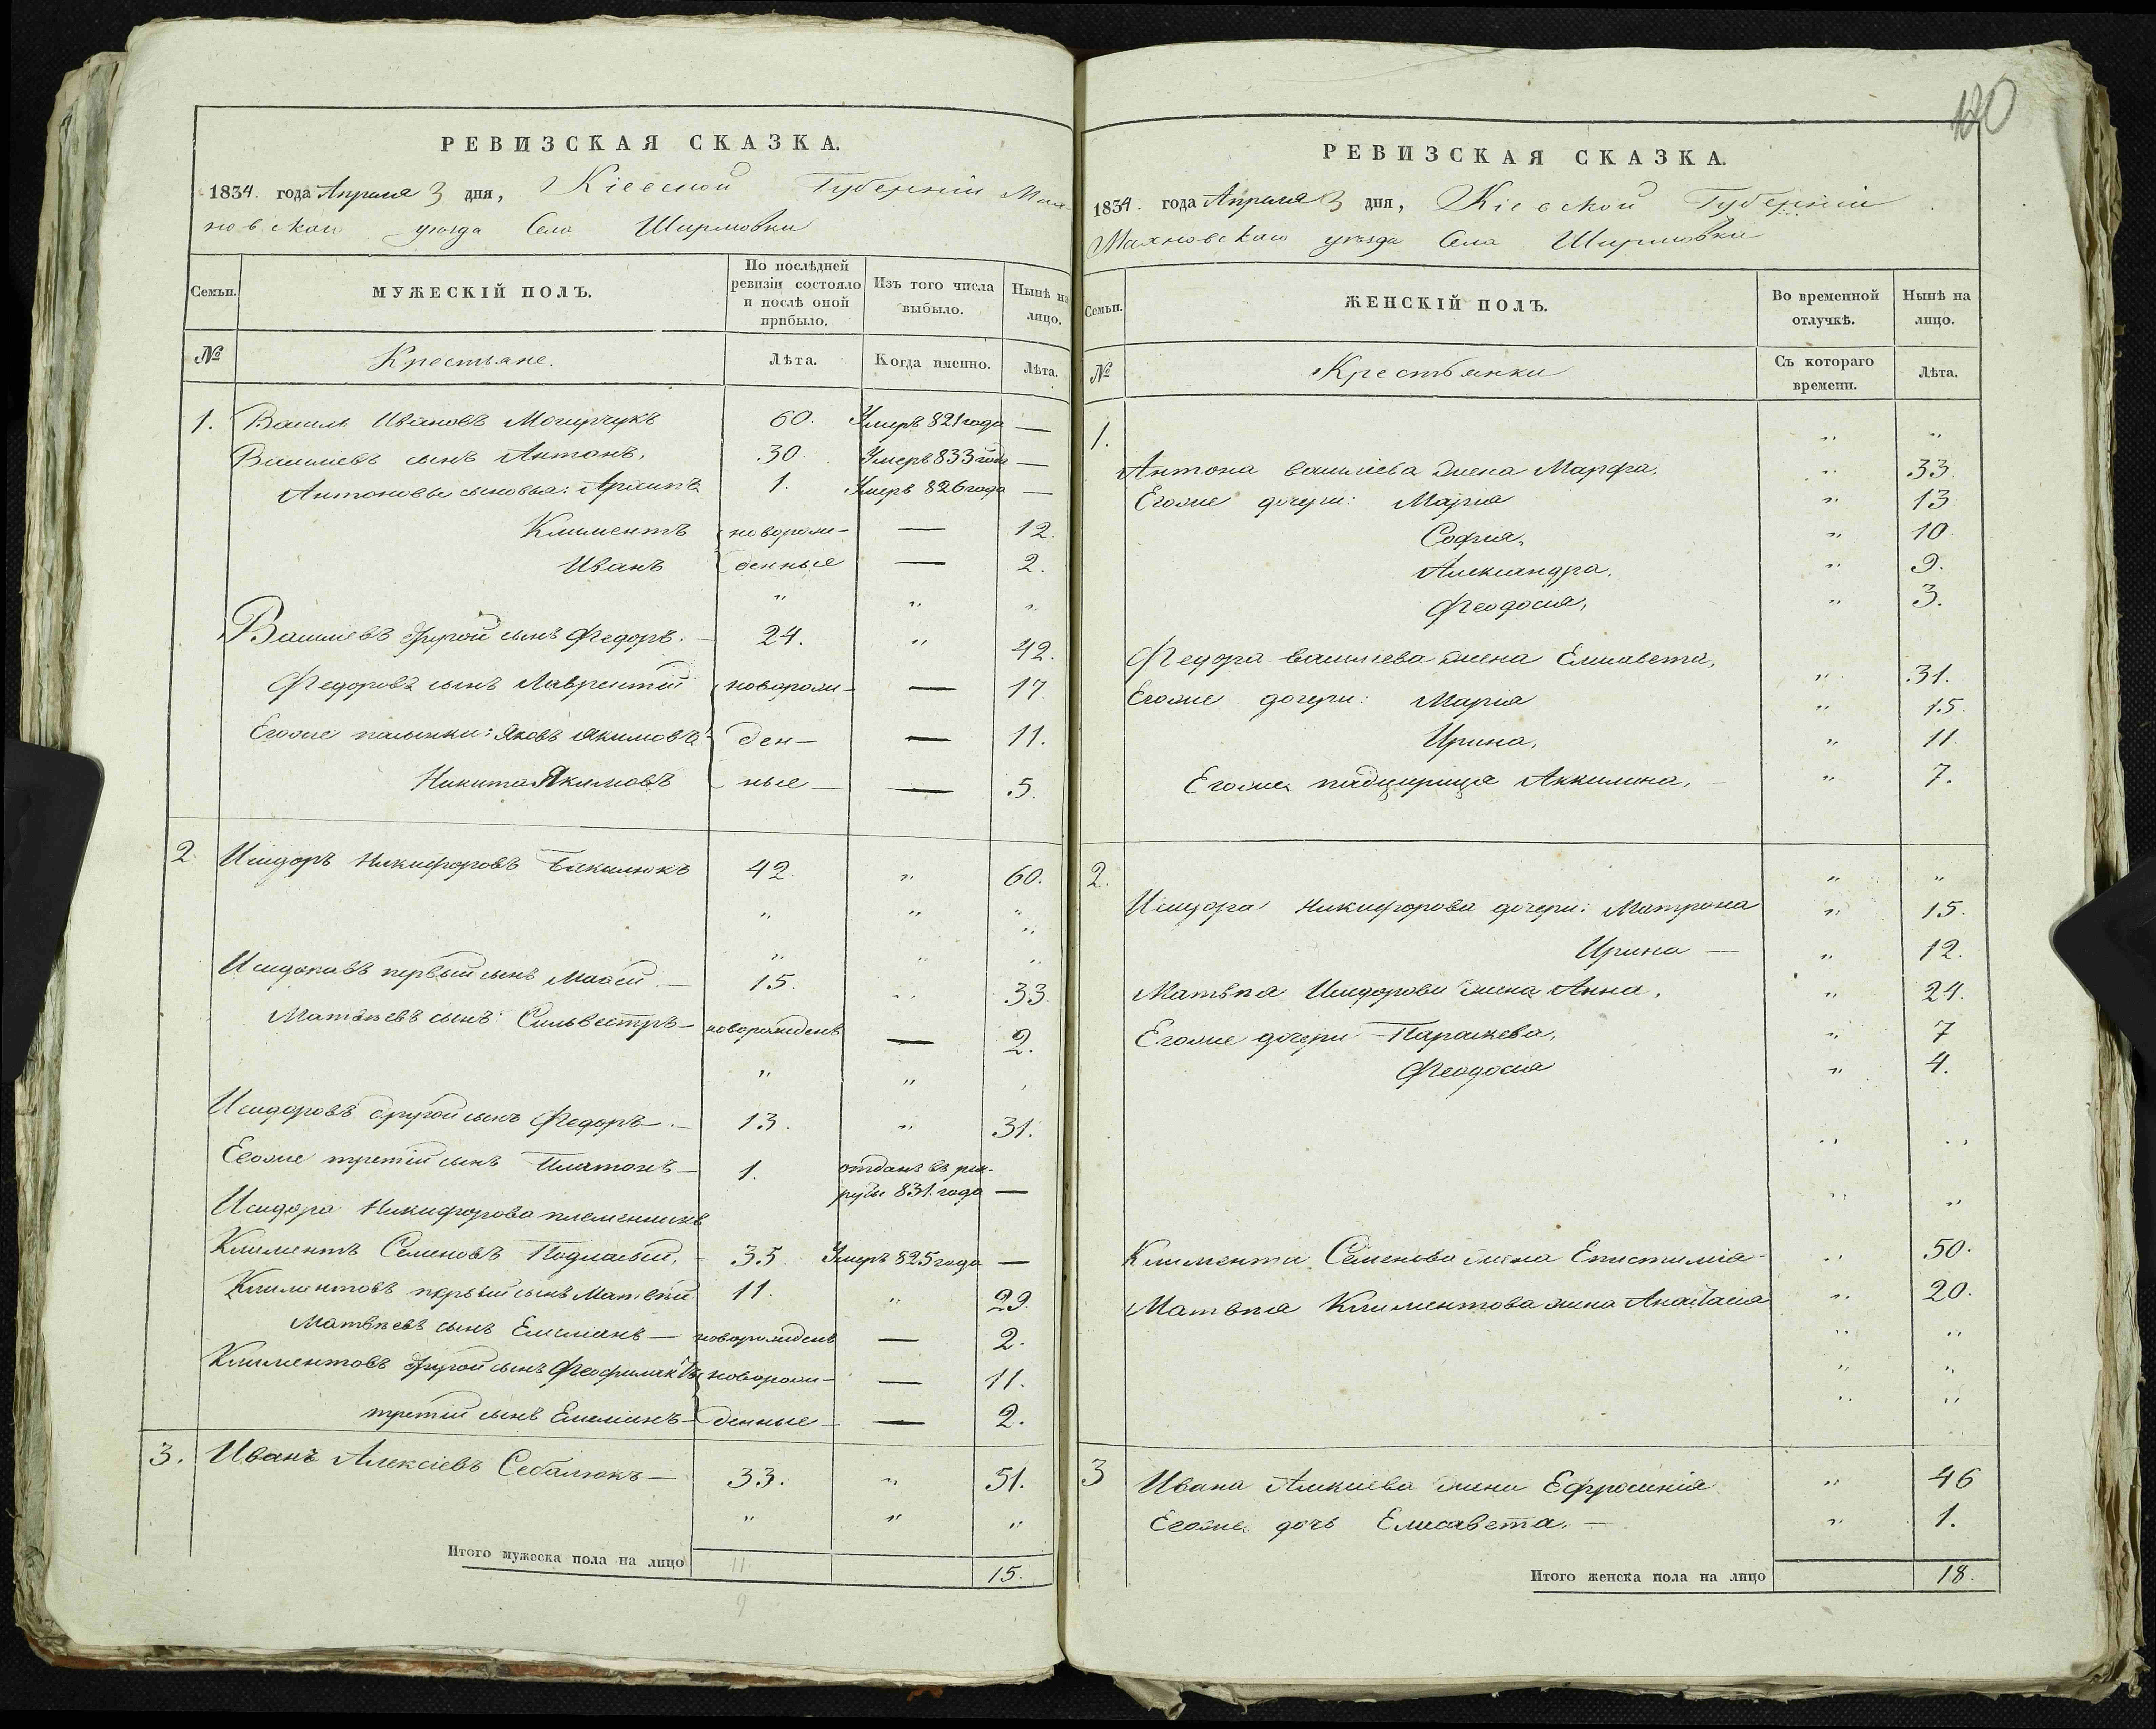 РЕВИЗСКАЯ СКАЗКА.
1834. года Апреля 3 дня, Кіевской Губерніи Мах-
новскаго уезда Села Ширмовки
Семьи.
МУЖЕСКІЙ ПОЛЪ.
По послѣдней ревизіи состояло и послѣ оной прибыло.
Изъ того числа выбыло.
Нынѣ на лицо.
№ Крестьяне. Лѣта. Когда именно. Лѣта.
1. Василь Ивановъ 60. Умеръ 821 года —
Васильевъ сынъ Антонъ, 30. Умеръ 833 года —
Антоновы сыновья: Архипъ 1. Умеръ 826 года —
Климентъ новорож- — 12.
Иванъ денные — 2.
" " "
Васильевъ другой сынъ Федоръ. — 24. " 42.
Федоровъ сынъ Лаврентій новорож- — 17.
Егоже пасынки: Яковъ Якимовъ ден- — 11.
Никита Якимовъ ные — — 5.
2 Исидоръ Никифоровъ 42. " 60.
" " "
" " "
Исидоровъ первый сынъ — 15. " 33.
Матвѣевъ сынъ: Сильвестръ — новорожденъ — 2.
" " "
Исидоровъ другой сынъ Федоръ. — 13. " 31.
Егоже третій сынъ Платонъ — 1. отданъ въ рек-
руты 831 года —
Исидора Никифорова племянникъ
Климентъ Семеновъ — 35. Умеръ 825 года —
Климентовъ первый сынъ Матвѣй 11. " 29.
Матвѣевъ сынъ Емельянъ — новорожденъ — 2.
Климентовъ другой сынъ Феофилактъ новорож- — 11.
третій сынъ Емельянъ — денные — — 2.
3. Иванъ Алексіевъ Себалюкъ — 33. " 51.
" " "
Итого мужеска пола на лицо 11 15.
120
РЕВИЗСКАЯ СКАЗКА.
1834. года Апреля 3 дня, Кіевской Губерніи
Махновскаго уезда Села Ширмовки
Семьи.
ЖЕНСКІЙ ПОЛЪ.
Во временной отлучкѣ.
Нынѣ на лицо.
№ Крестьянки Съ котораго времени. Лѣта.
1. " "
Антона Васильева жена Марфа. " 33.
Егоже дочери: Марія " 13.
Софія, " 10.
Александра, " 9.
Феодосія, " 3.
Федора Васильева жена Елисавета, " 31.
Егоже дочери: Марія " 15.
Ирина, " 11.
Егоже падщерица Аккилина, — " 7.
2. " "
Исидора Никифорова дочери: Матрона " 15.
Ирина — " 12.
Матвѣя Исидорова жена Анна, " 24.
Егоже дочери Параскева, " 7
Феодосія " 4.
" "
" "
Климента Семенова жена Епистимія " 50.
Матвѣя Климентова жена Анастасія " 20.
" "
" "
" "
3 Ивана Алексіева жена Ефросинія " 46
Егоже дочь Елисавета. — " 1.
Итого женска пола на лицо 18.